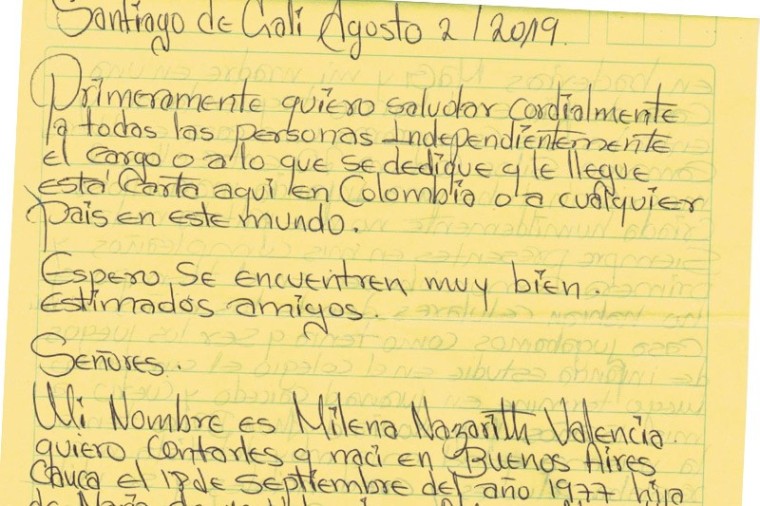 Santiago de Cali Agosto 2 / 2019.
Primeramente quiero saludar cordialmente
a todas las personas Independientemente
el cargo o a lo que se dedique q le llegue
está Carta aqui en Colombia o a cualquier
Pais en este mundo.
Espero Se encuentren muy bien.
Estimados amigos.
Señores.
Mi Nombre es Milena Nazarith Valencia
quiero Contarles q naci en Buenos Aires
Cauca el 18 de Septiembre del año 1977 hija
de María